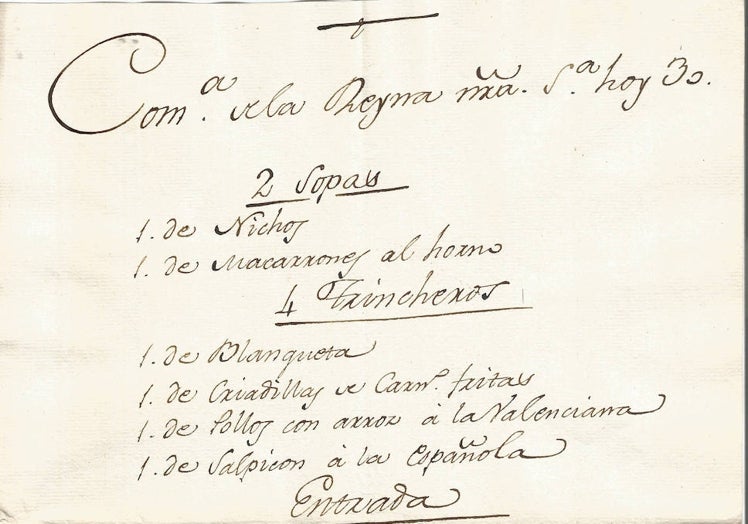 Com.ª de la Reyna nrã. S.ª hoy 30.
2 Sopas
1. de Nichos
1. de Macarrones al horno
4 Trincheros
1. de Blanqueta
1. de Criadillas de Carn.º fritas
1. de Pollos con arroz à la Valenciana
1. de Salpicon à la Española
Entrada